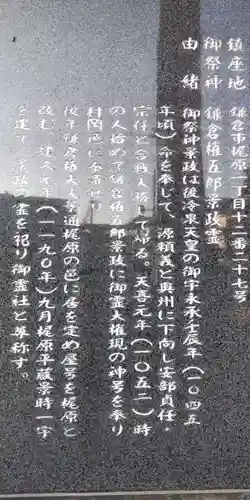 鎮座地 鎌倉市梶原一丁目十二番二十七号
御祭神 鎌倉権五郎景政霊
由緒 御祭神景政は後冷泉天皇の御宇永承壬辰年(一〇四五
年頃)命を奉じて、源頼義と奥州に下向し安部貞任・
宗任と合戦大勝して帰る。天喜元年(一〇五二)時
の人始めて鎌倉権五郎景政に御霊大権現の神号を奉り
村岡邑に
後年鎌倉権太夫景通梶原の邑に居を定め屋号を梶原と
改む。建久元年(一一九〇年)九月梶原平蔵景時一宇
を建て 景政の霊を祀り御霊社と尊称す。